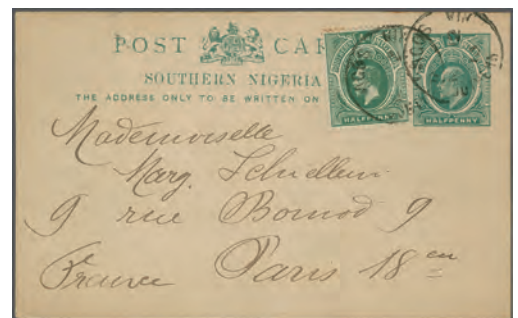 POST CAR
SOUTHERN NIGERIA
THE ADDRESS ONLY TO BE WRITTEN ON
HALFPENNY
HALFPENNY
Mademoiselle
Marg.
9 rue Boinod 9
France Paris 18 en